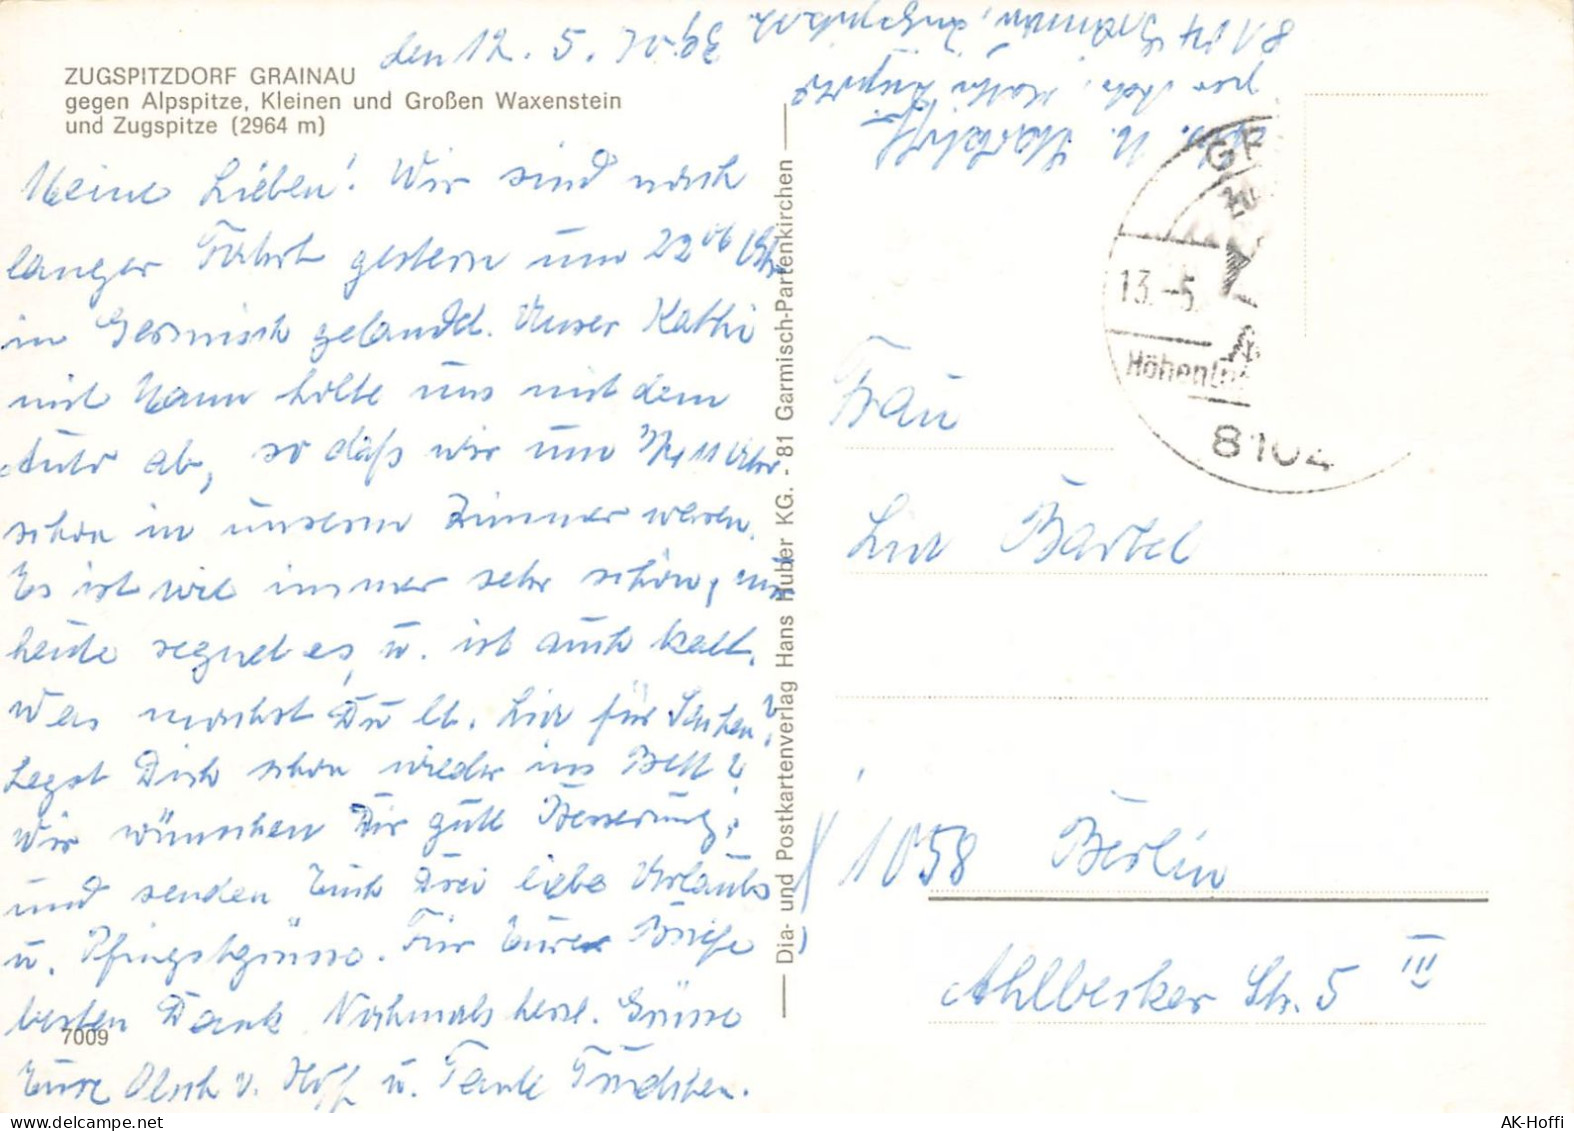 den 12. 5.
ZUGSPITZDORF GRAINAU
gegen Alpspitze, Kleinen und Großen Waxenstein
und Zugspitze (2964 m)
Meine Lieben! Wir sind nach
langer Fahrt gestern um 22 06 Uhr
in Germisch gelandet. Unser Kathi
mit Mann holte uns mit dem
Auto ab, so daß wir um 3/4 11 Uhr
schon in unserem Zimmer waren.
Es ist wie immer sehr schön, nur
heute regnet es, u. ist auch kalt.
Was machst Du lb. Lia für Sachen?
Legst Dich schon wieder ins Bett?
Wir wünschen Dir gute Besserung,
und senden Euch Drei liebe Urlaubs
u. Pfingstgrüsse. Für Eure Briefe
besten Dank. Nochmals herzl. Grüsse
Eure u. Tante Trudchen.
7009
Dia- und Postkartenverlag Hans Huber KG. - 81 Garmisch-Partenkirchen
8104 Grainau
13.-5
Höhenlu
8104
Frau
Lia Bartel
1058 Berlin
Ahlbecker Str. 5 III
AK-Hoffi